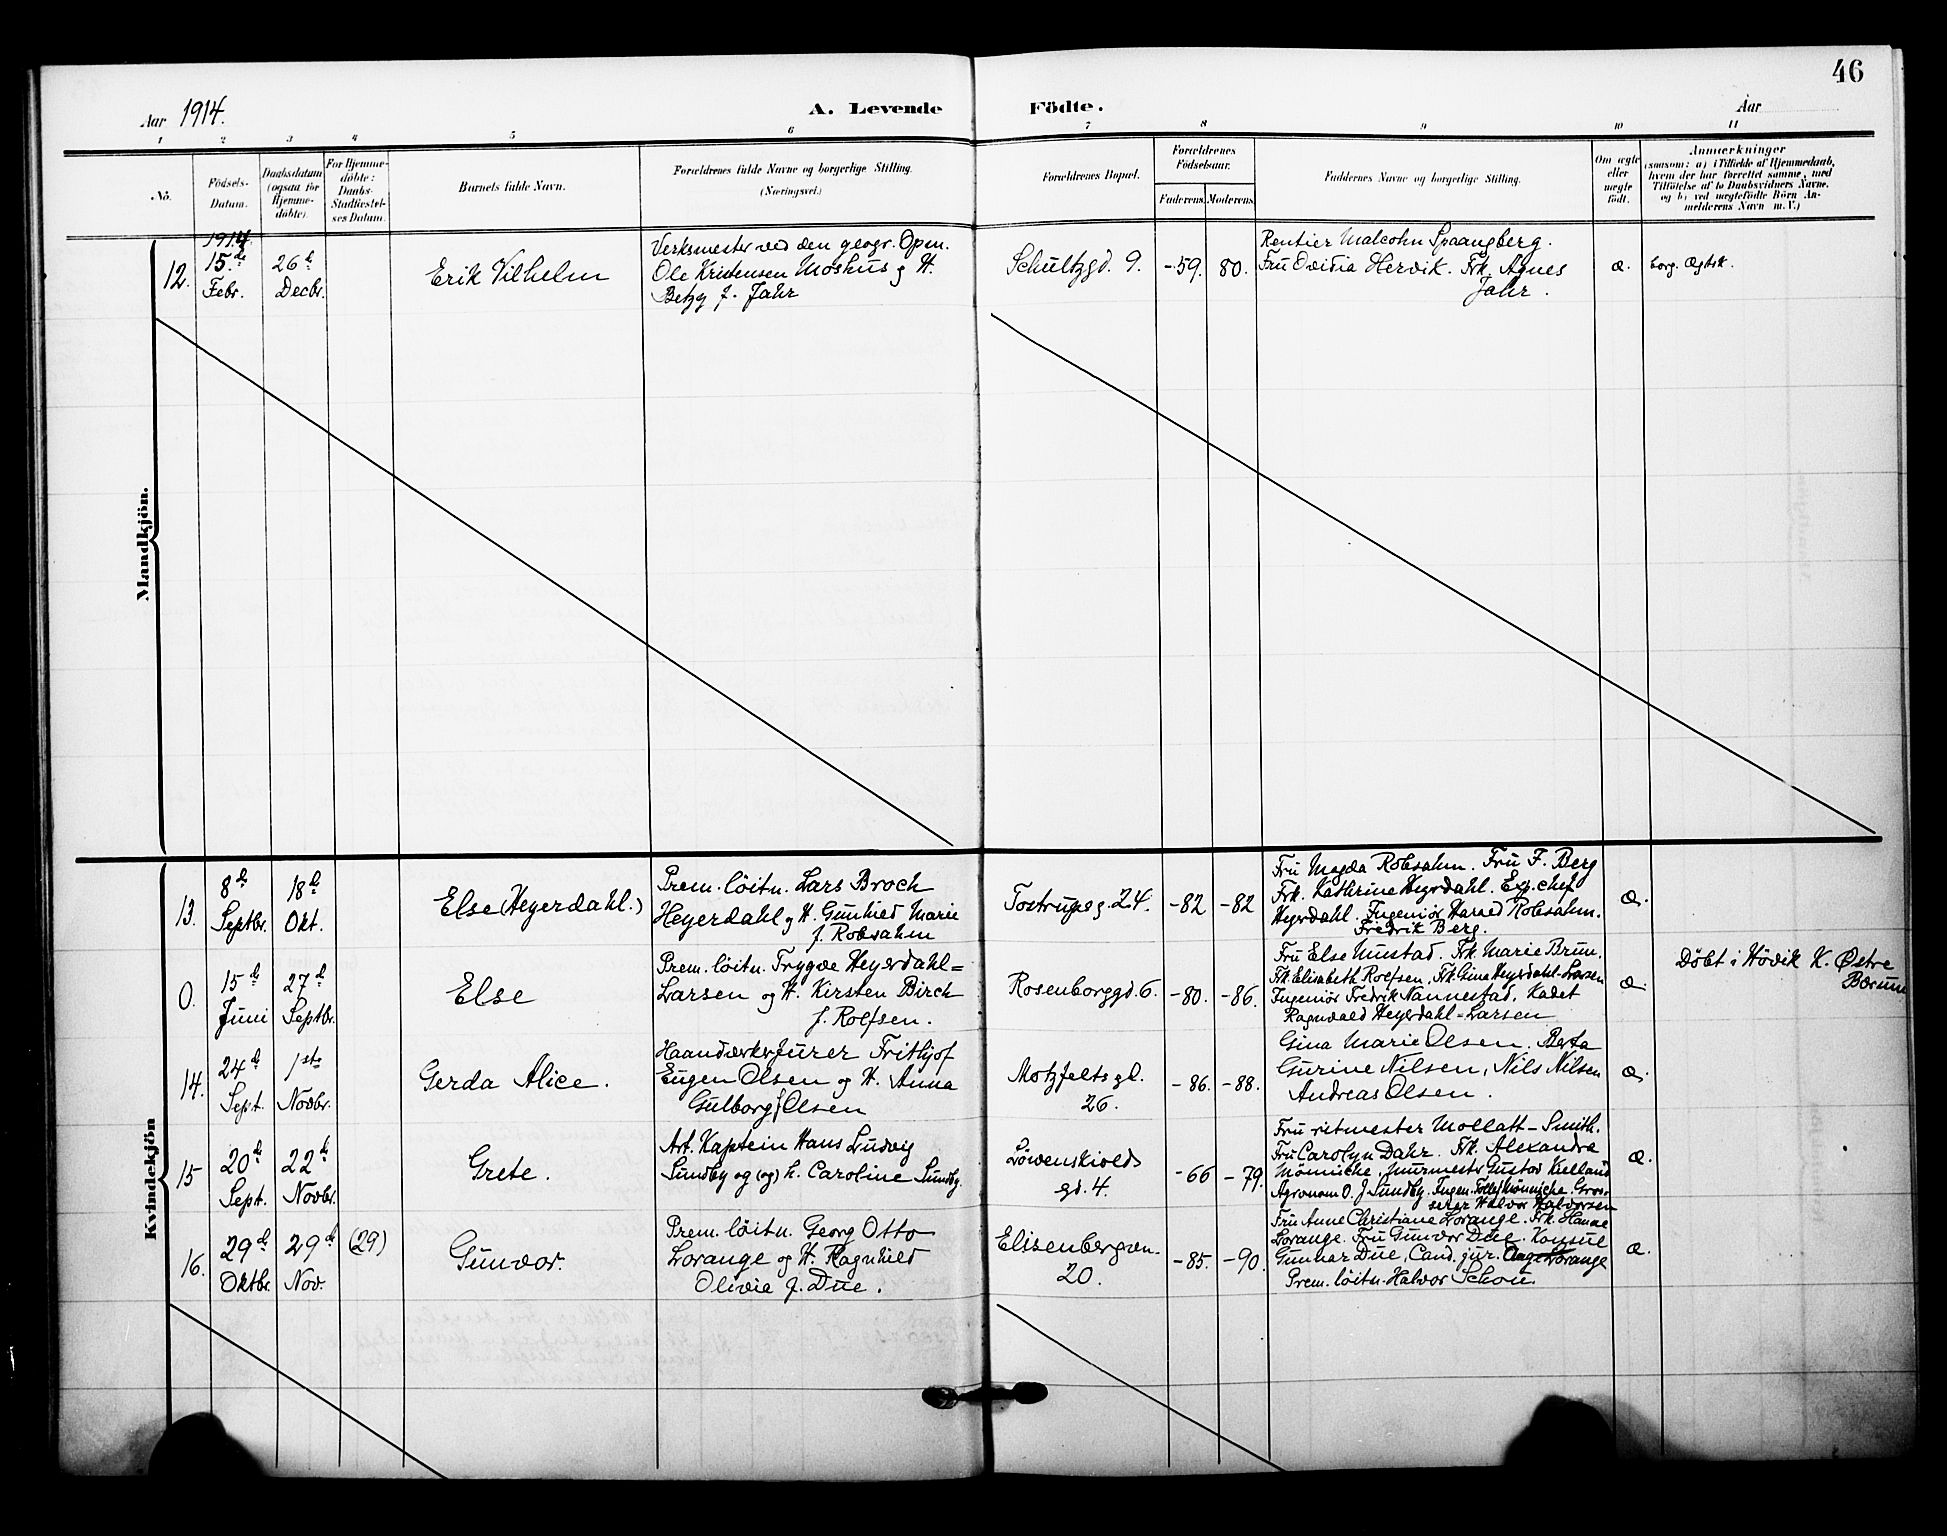 46
Aar 1914.
A. Levende
Födte.
Aar
1
2
3
4
5
6
7
8
9
10
11
No.
Födsels-
Datum.
Daabsdatum
(ogsaa for
Hjemme-
döbte).
For Hjemme-
döbte:
Daabs-
Stadfæstel-
ses Datum.
Barnets fulde Navn.
Forældrenes fulde Navne og borgerlige Stilling.
(Næringsvei.)
Forældrenes Bopæl.
Forældrenes
Födselsaar.
Faderens.
Moderens.
Faddernes Navne og borgerlige Stilling.
Om ægte
eller
uægte
födt.
Anmærkninger
(saasom: a) i Tilfælde af Hjemmedaab,
hvem der har forrettet samme, med
Tilföielse af to Daabsvidners Navne.
og b) ved uægtefödte Börn An-
melderens Navn m.V.)
Mandkjön.
12.
1914
15.de
Febr.
26d
Decbr.
Erik Vilhelm
Verksmester ved den geogr. Opm.
Ole Kristensen Moshus og H.
Betzy f. Jahr
Schultzgd. 9.
-59.
80.
Rentier Malcohn Spaangberg.
Fru Ovidia Hervik. Frk. Agnes
Jahr.
æ.
borg. Ægtsk.
Kvindekjön
13.
8d
Septbr.
18d
Okt.
Else (Heyerdahl.)
Prem. löitn. Lars Broch
Heyerdahl og H. Gunhild Marie
f. Robsahm
Tostrupsg. 24.
-82
-82
Fru Magda Robsahm. Fru F. Berg
Frk. Kathrine Heyerdahl. Exp.chef
Heyerdahl. Ingeniör Harald Robsahm.
Fredrik Berg.
æ.
0.
15d
Juni
27d
Septbr.
Else
Prem. löitn. Trygve Heyerdahl=
Larsen og H. Kirsten Birch
f. Rolfsen.
Rosenborggd. 6.
-80.
-86.
Fru Else Mustad. Frk. Marie Brun.
Frk. Elisabeth Rolfsen, Frk. Gina Heyerdahl-Larsen
Ingeniör Fredrik Nannestad, Kadet
Ragnvald Heyerdahl-Larsen
æ.
Döbt i Hövik K. Østre
Bærum
14.
24d
Sept.
1ste
Novbr.
Gerda Alice.
Haandverksfurer Frithjof
Eugen Olsen og H. Anna
Gulborg f. Olsen
Motzfeltsgd.
26.
-86.
-88.
Gina Marie Olsen. Berta
Gurine Nilsen, Nils Nilsen
Andreas Olsen.
æ.
15
20d
Sept.
22d
Novbr.
Grete.
Art. Kaptein Hans Ludvig
Sundby og (og) h. Caroline Sundby.
Löwenskiolds
gd. 4.
-66
-79.
Fru ritmester Mollatt-Smith.
Fru Carolyn Dahr. Frk. Alexandra
Mönniche, Murmestr Gustav Kielland
Agronom O. J. Sundby. Ingen. Tollef Mönniche. Gros-
serer Halvor Halvorsen
æ.
16.
29d
Oktbr.
29d
Nov.
(29)
Gunvor.
Prem. löitn. Georg Otto
Lorange og H. Ragnhild
Olivia f. Due.
Elisenbergvn.
20.
-85.
-90.
Fru Anne Christiane Lorange. Frk. Hanne
Lorange. Fru Gunvor Due. Konsul
Gunnar Due, Cand. jur. Aage Lorange
Prem. löitn. Halvor Schou.
æ.